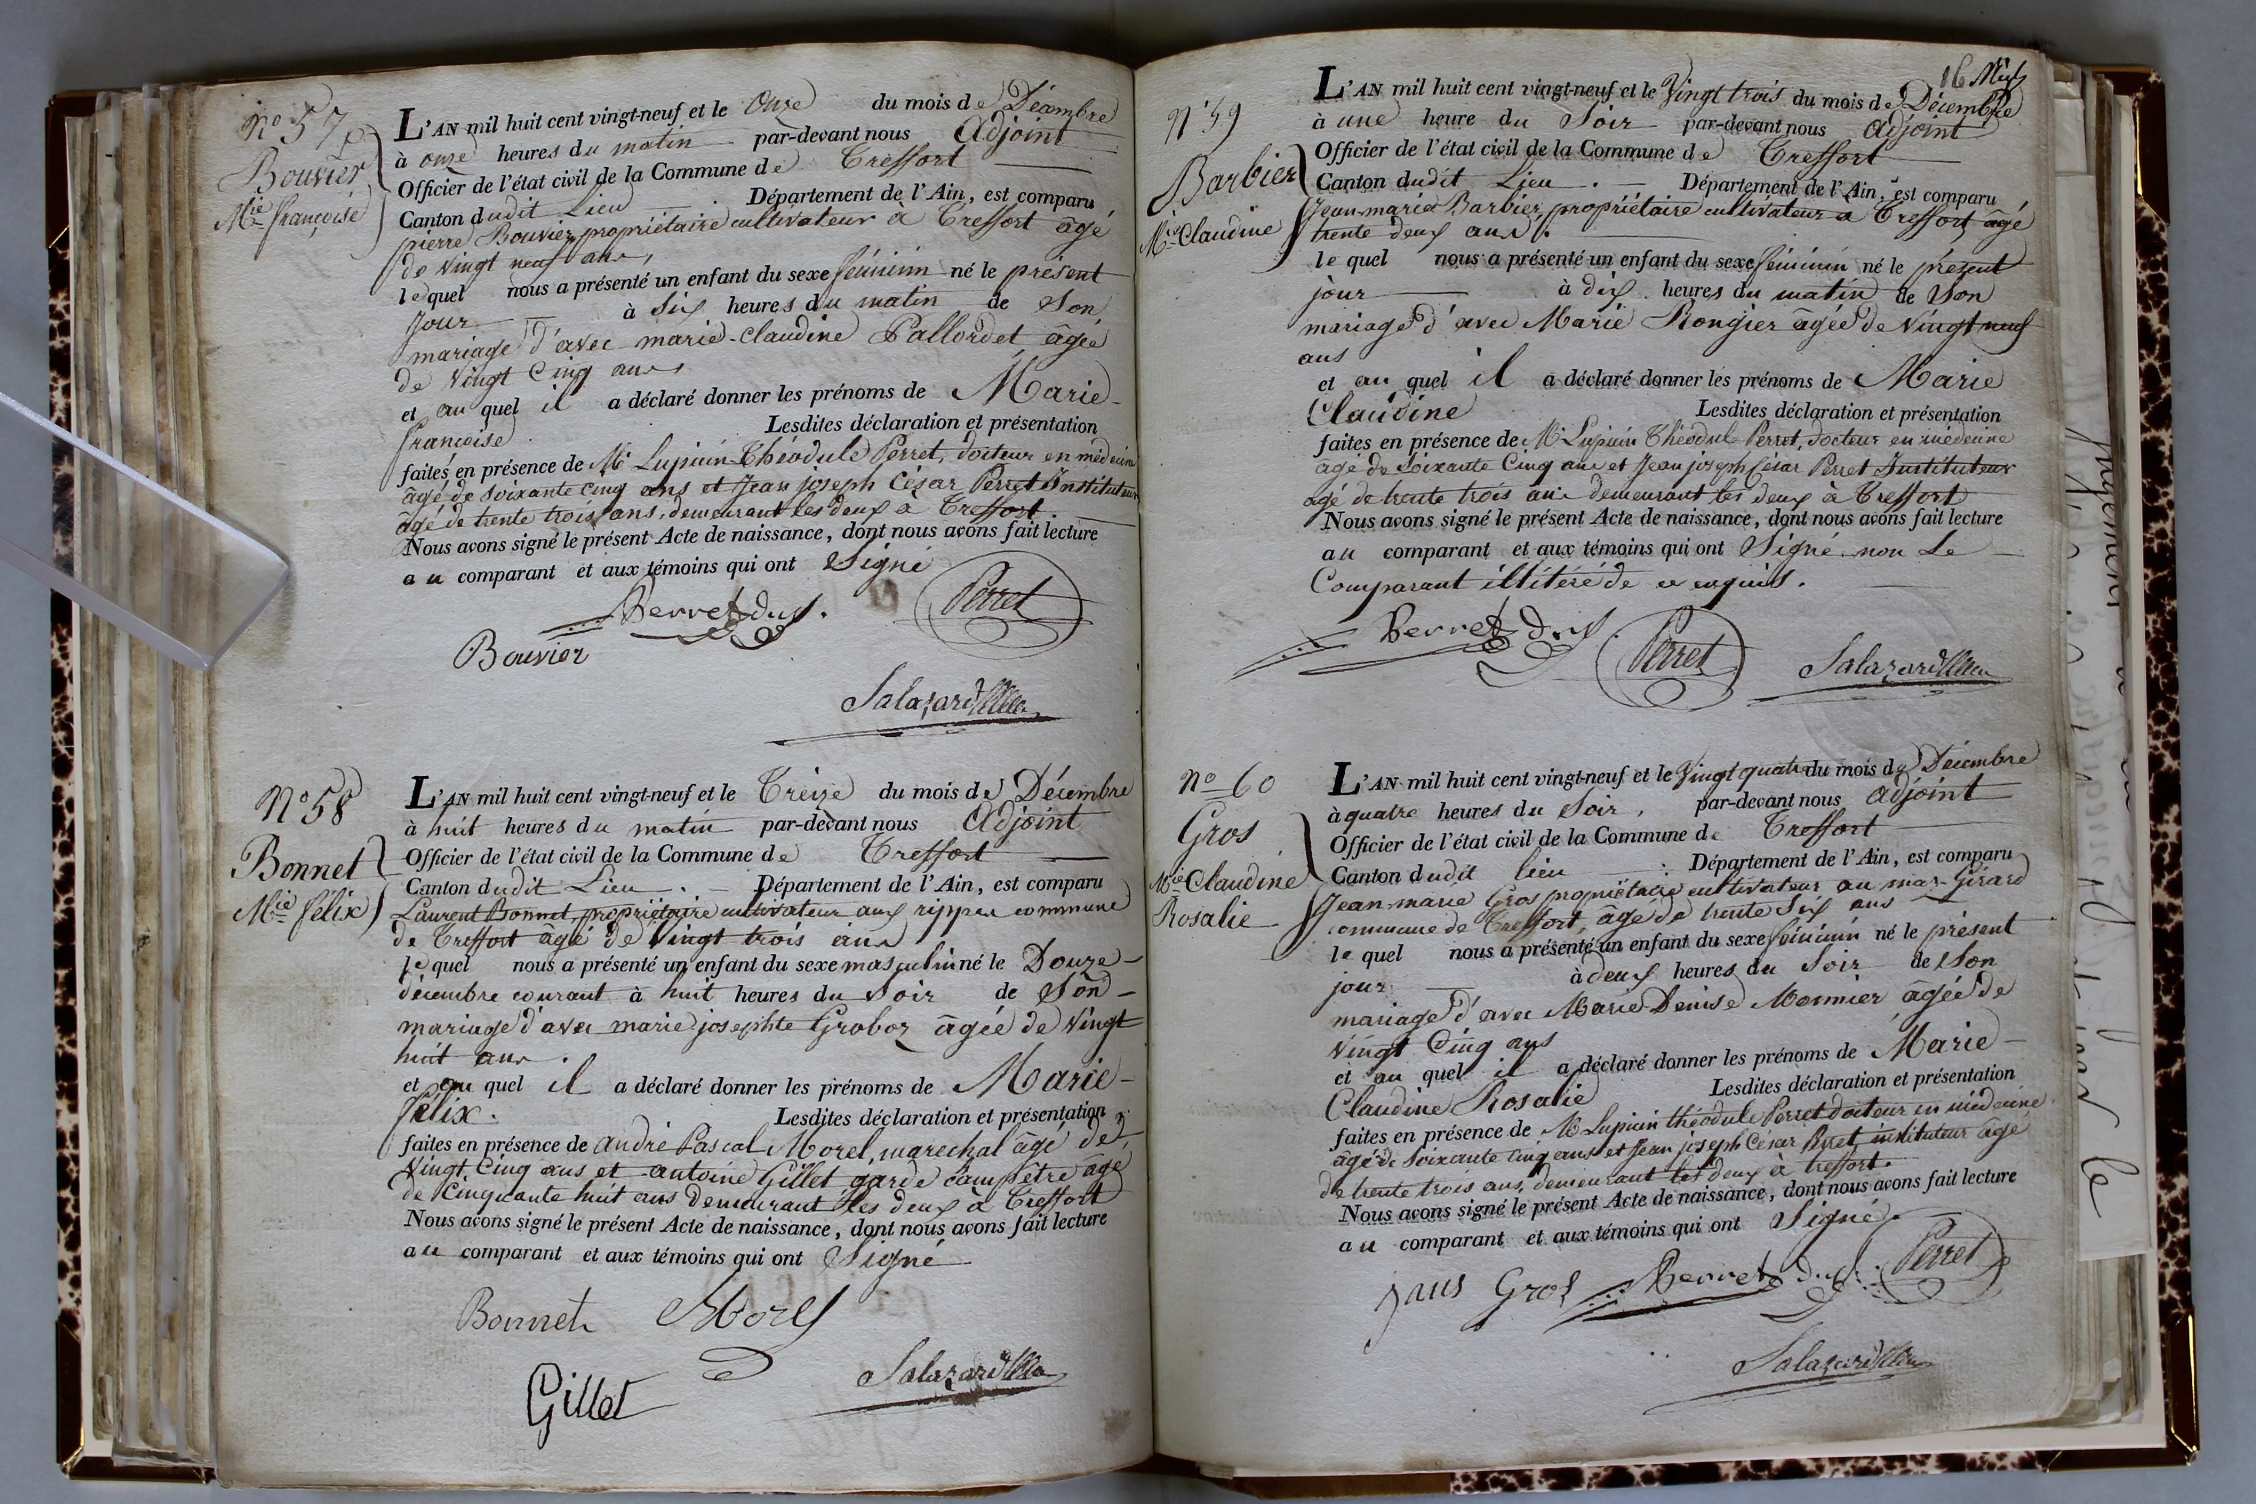 N° 57
Bouvier
Mie françoise
L'AN mil huit cent vingt-neuf et le Onze du mois de Décembre
à onze heures du matin par-devant nous Adjoint
Officier de l'état civil de la Commune de Treffort
Canton dudit Lieu. Département de l'Ain, est comparu
pierre Bouvier, propriétaire cultivateur à Treffort âgé
de vingt neuf ans,
lequel nous a présenté un enfant du sexe féminin né le présent
Jour à Six heures du matin de Son
mariage d'avec marie-claudine Pallordet âgée
de vingt Cinq ans
et au quel il a déclaré donner les prénoms de Marie-
françoise. Lesdites déclaration et présentation
faites en présence de Mr Lupicin Théodule Perret, docteur en médecine
âgé de soixante cinq ans et Jean joseph César Perret Instituteur
âgé de trente trois ans, demeurant les deux à Treffort.
Nous avons signé le présent Acte de naissance, dont nous avons fait lecture
au comparant et aux témoins qui ont Signé
Perret Perret
Bouvier
Salazard
N° 58
Bonnet
Mie félix
L'AN mil huit cent vingt-neuf et le Treize du mois de Décembre
à huit heures du matin par-devant nous Adjoint
Officier de l'état civil de la Commune de Treffort
Canton dudit Lieu. Département de l'Ain, est comparu
Laurent Bonnet, propriétaire cultivateur aux rippes commune
de Treffort âgé de vingt trois ans
lequel nous a présenté un enfant du sexe masculin né le Douze
décembre courant à huit heures du Soir de Son
mariage d'avec marie josephte Groboz âgée de vingt
huit ans.
et au quel il a déclaré donner les prénoms de Marie-
félix. Lesdites déclaration et présentation
faites en présence de andré Pascal Morel, marechal âgé de
vingt Cinq ans et antoine Gillet garde champêtre âgé
de Cinquante huit ans demeurant les deux à Treffort
Nous avons signé le présent Acte de naissance, dont nous avons fait lecture
au comparant et aux témoins qui ont Signé
Bonnet Morel
Gillet Salazard
16
N° 59
Barbier
Mie Claudine
L'AN mil huit cent vingt-neuf et le Vingt trois du mois de Décembre
à une heure du Soir par-devant nous adjoint
Officier de l'état civil de la Commune de Treffort
Canton dudit Lieu. Département de l'Ain, est comparu
Jean-marie Barbier, propriétaire cultivateur à Treffort, âgé
trente deux ans.
lequel nous a présenté un enfant du sexe féminin né le présent
jour à dix heures du matin de Son
mariage d'avec Marie Rongier âgée de Vingt neuf
ans
et au quel il a déclaré donner les prénoms de Marie
Claudine Lesdites déclaration et présentation
faites en présence de Mr Lupicin Théodule Perret, docteur en médecine
âgé de Soixante Cinq ans et Jean joseph César Perret Instituteur
agé de trente trois ans demeurant les deux à Treffort
Nous avons signé le présent Acte de naissance, dont nous avons fait lecture
au comparant et aux témoins qui ont Signé non Le
Comparant illitéré de ce enquis.
Perret Perret Salazard
N° 60
Gros
Mie Claudine
Rosalie
L'AN mil huit cent vingt-neuf et le Vingt quatre du mois de Décembre
à quatre heures du Soir, par-devant nous adjoint
Officier de l'état civil de la Commune de Treffort
Canton dudit lieu. Département de l'Ain, est comparu
Jean-marie Gros propriétaire cultivateur au mas-Girard
commune de Treffort, âgé de trente Six ans
lequel nous a présenté un enfant du sexe féminin né le présent
jour à deux heures du Soir de Son
mariage d'avec Marie Denise Monnier âgée de
vingt Cinq ans
et au quel il a déclaré donner les prénoms de Marie-
Claudine Rosalie Lesdites déclaration et présentation
faites en présence de Mr Lupicin théodule Perret docteur en médecine
âgé de Soixante cinq ans et Jean joseph César Perret instituteur âgé
de trente trois ans, demeurant les deux à treffort.
Nous avons signé le présent Acte de naissance, dont nous avons fait lecture
au comparant et aux témoins qui ont Signé.
Gros Perret Perret
Salazard